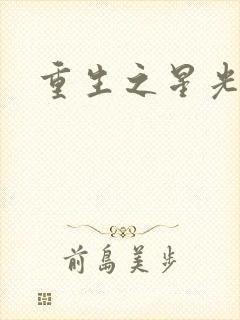 重生之星光
前島美步